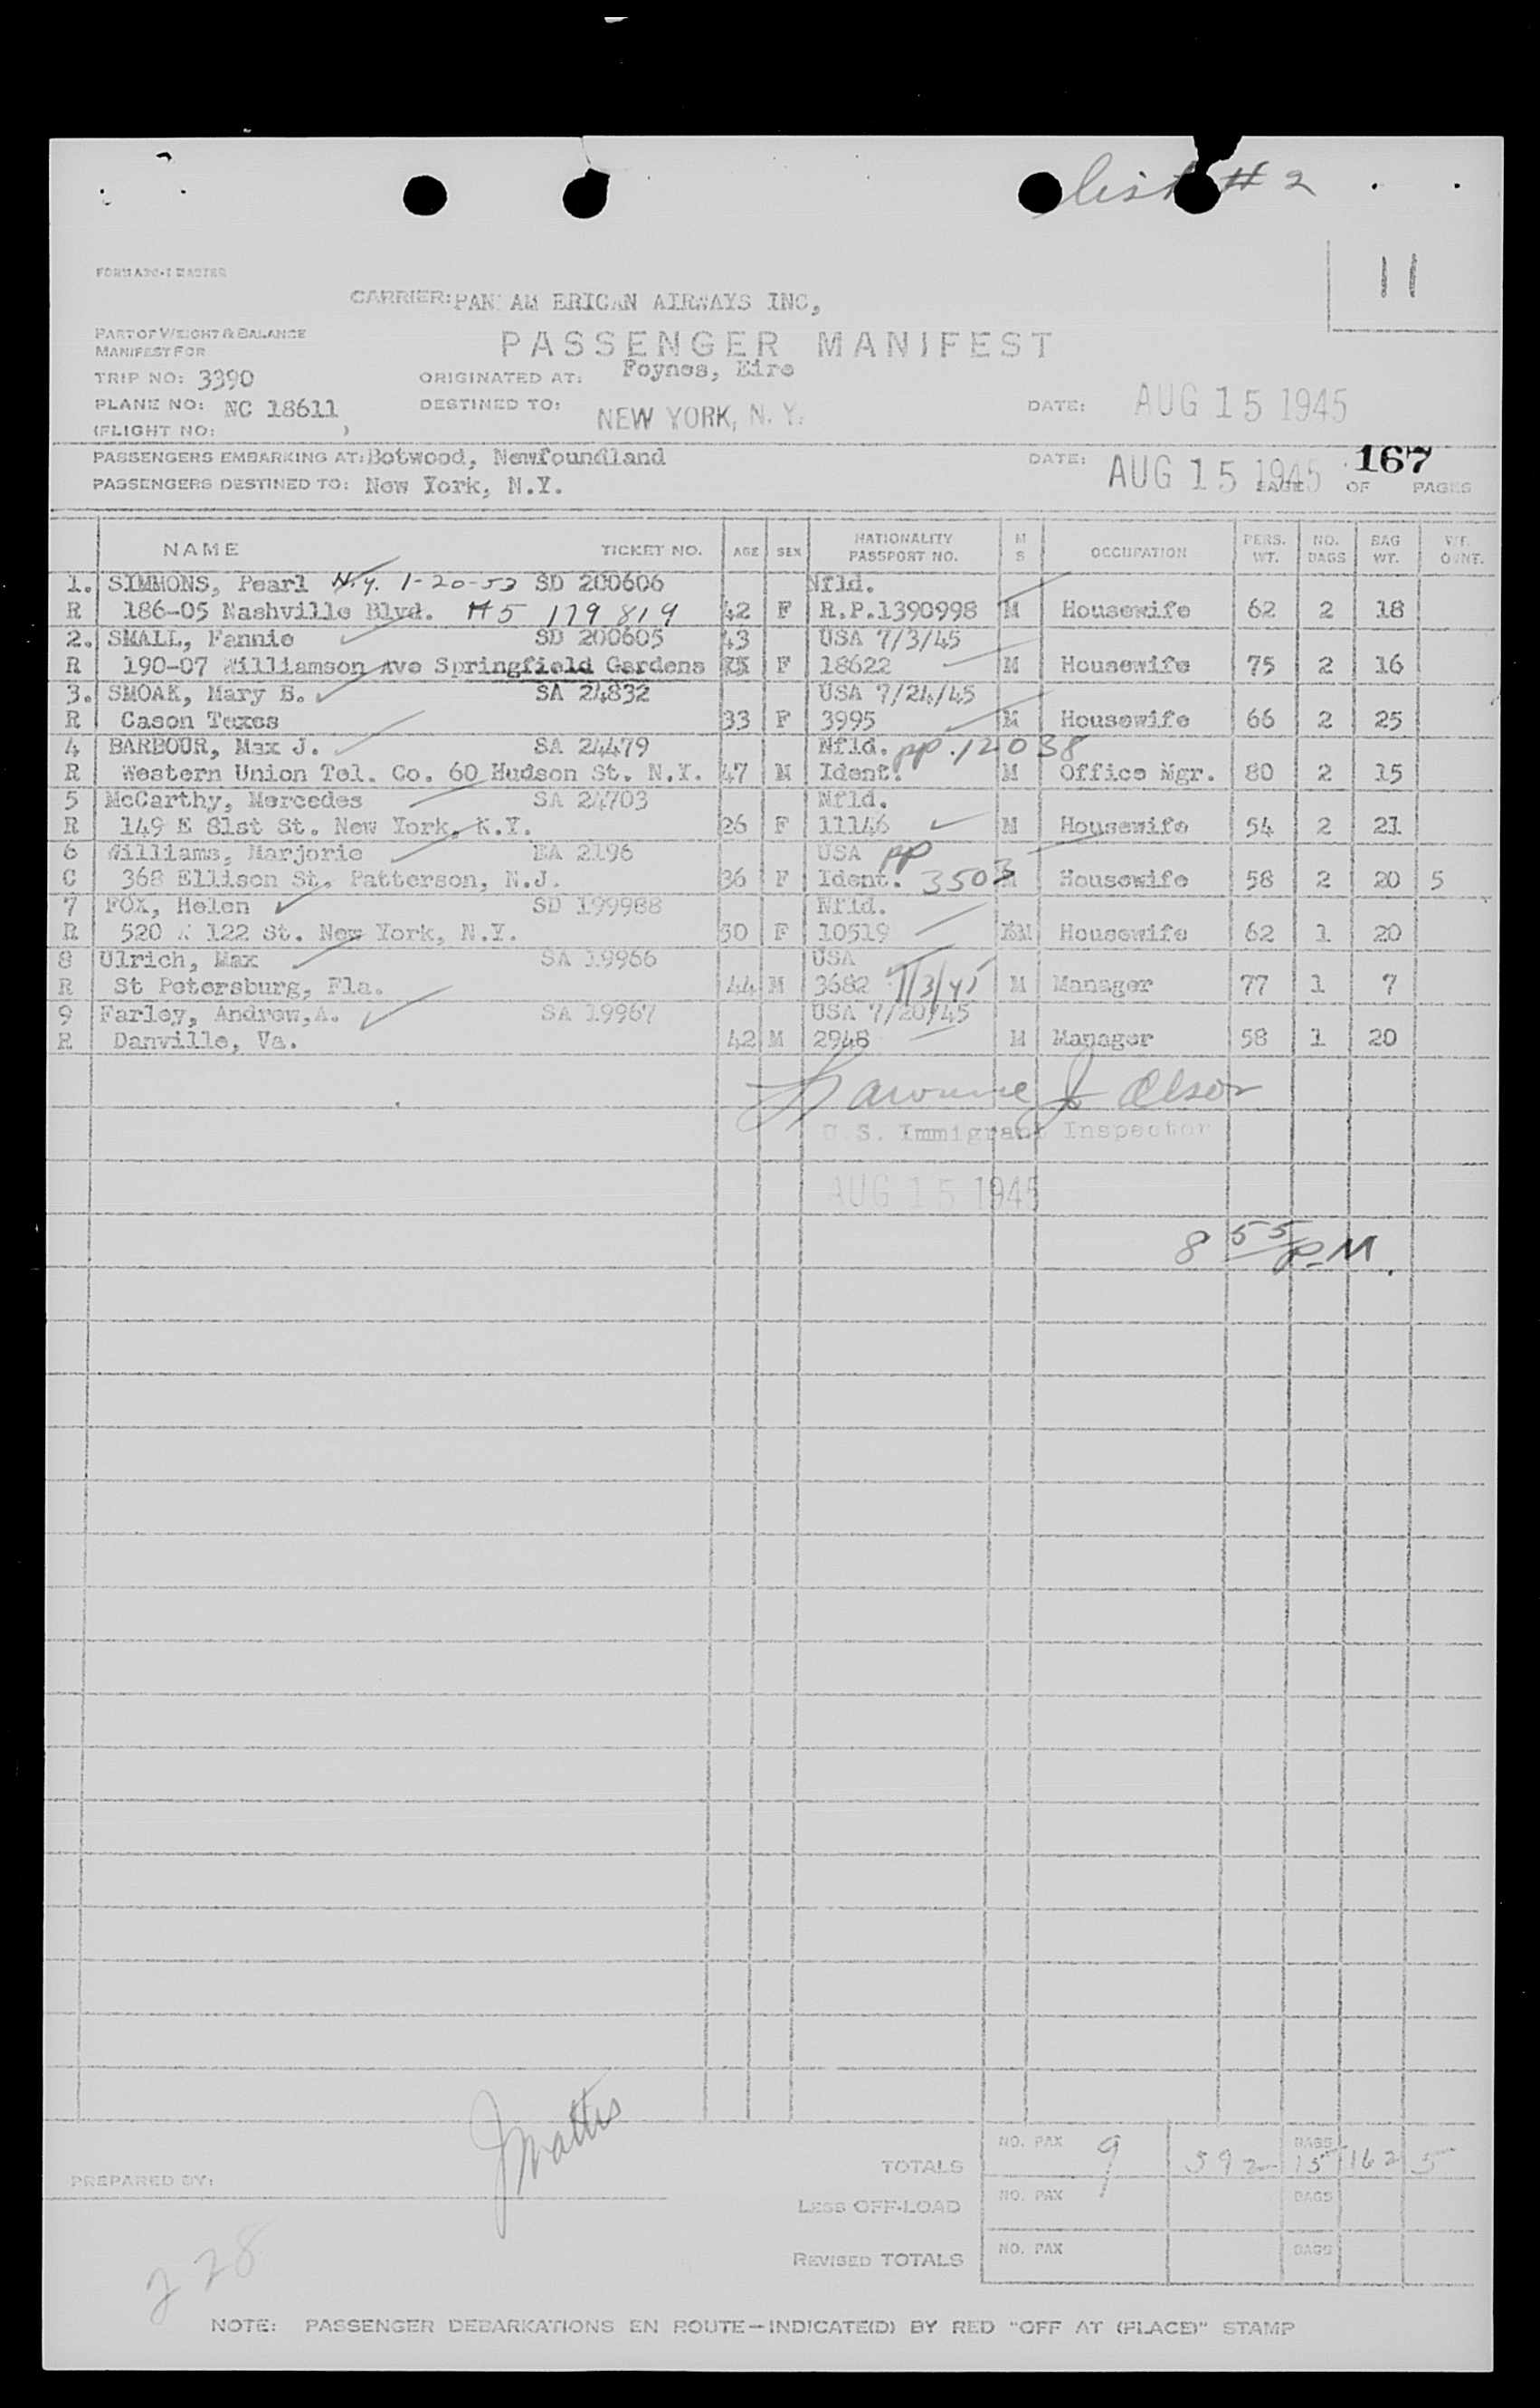 list # 2
11
FORM ADC-1 MASTER
CARRIER: PAN AM ERICAN AIRWAYS INC,
PART OF WEIGHT & BALANCE
MANIFEST FOR
PASSENGER MANIFEST
TRIP NO: 3390 ORIGINATED AT: Foynes, Eire
PLANE NO: NC 18611 DESTINED TO: NEW YORK, N.Y. DATE: AUG 15 1945
(FLIGHT NO: )
PASSENGERS EMBARKING AT: Botwood, Newfoundland DATE: AUG 15 1945 167
PASSENGERS DESTINED TO: New York, N.Y. PAGE OF PAGES
NAME TICKET NO. AGE SEX NATIONALITY PASSPORT NO. M S OCCUPATION PERS. WT. NO. BAGS BAG WT. WT. OVNT.
1. SIMMONS, Pearl N.Y. 1-20-53 SD 200606 Nfld.
R 186-05 Nashville Blvd. #5 179 819 42 F R.P.1390998 M Housewife 62 2 18
2. SMALL, Fannie SD 200605 43 USA 7/3/45
R 190-07 Williamson Ave Springfield Gardens F 18622 M Housewife 75 2 16
3. SMOAK, Mary B. SA 24832 USA 7/24/45
R Cason Texas 33 F 3995 M Housewife 66 2 25
4 BARBOUR, Max J. SA 24479 Nfld. pp.12038
R Western Union Tel. Co. 60 Hudson St. N.Y. 47 M Ident. M Office Mgr. 80 2 15
5 McCarthy, Mercedes SA 24703 Nfld.
R 149 E 81st St. New York, N.Y. 26 F 11146 M Housewife 54 2 21
6 Williams, Marjorie EA 2196 USA pp
C 368 Ellison St. Patterson, N.J. 36 F Ident. 3503 M Housewife 58 2 20 5
7 FOX, Helen SD 199988 Nfld.
R 520 W 122 St. New York, N.Y. 30 F 10519 M Housewife 62 1 20
8 Ulrich, Max SA 19966 USA
R St Petersburg, Fla. 44 M 3682 7/3/45 M Manager 77 1 7
9 Farley, Andrew,A. SA 19967 USA 7/20/45
R Danville, Va. 42 M 2948 M Manager 58 1 20
Lawrence J. Olson
U.S. Immigrant Inspector
AUG 15 1945
8 55 PM.
PREPARED BY: J Mattis
TOTALS NO. PAX 9 592 BAGS 15 162 5
LESS OFF-LOAD NO. PAX BAGS
REVISED TOTALS NO. PAX BAGS
228
NOTE: PASSENGER DEBARKATIONS EN ROUTE—INDICATE(D) BY RED "OFF AT (PLACE)" STAMP